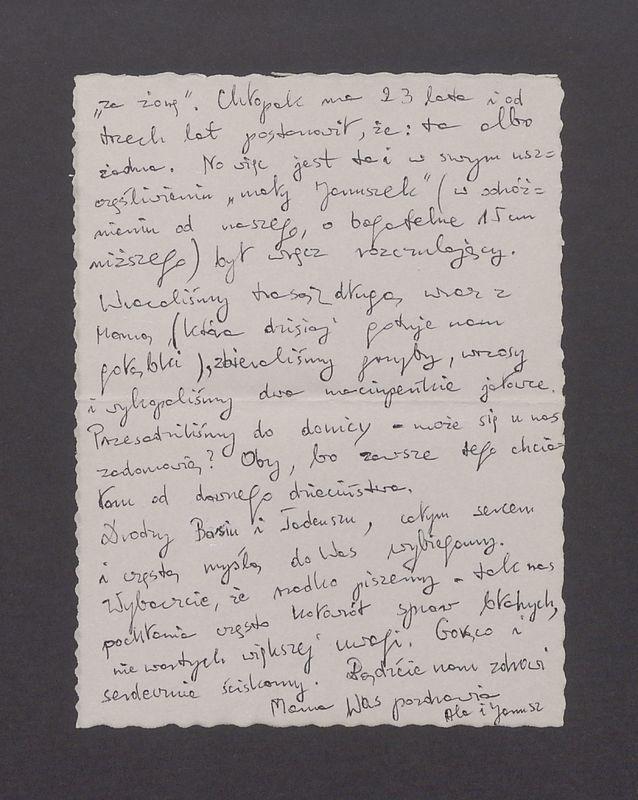 „za żonę". Chłopak ma 23 lata i od
trzech lat postanowił, że: ta albo
żadna. No więc jest ta i w swym usz=
częśliwieniu „mały Januszek" (w odróż=
nieniu od naszego, o bagatelne 15 cm
niższego) był wręcz rozczulający.
Wracaliśmy trasą długą, wraz z
Mamą, (która dzisiaj gotuje nam
gołąbki), zbieraliśmy grzyby, wrzosy
i wykopaliśmy dwa maciupeńkie jałowce.
Przesadziliśmy do donicy – może się u nas
zadomowią? Oby, bo zawsze tego chcia=
łam od dawnego dzieciństwa.
Drodzy Basiu i Tadeuszu, całym sercem
i częstą myślą do Was wybiegamy.
Wybaczcie, że rzadko piszemy – tak nas
pochłania często kołowrót spraw błahych,
nie wartych większej uwagi. Gorąco i
serdecznie ściskamy. Bądźcie nam zdrowi
Mama Was pozdrawia
Ala i Janusz